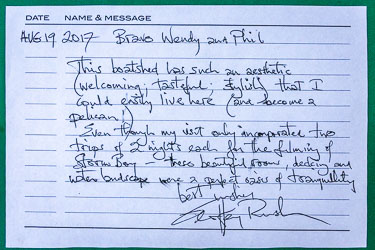 DATE NAME & MESSAGE
AUG 19 2017 Bravo Wendy and Phil
This boatshed has such an aesthetic
(welcoming, tasteful, stylish) that I
could easily live here (and become a
pelican!)
Even though my visit only incorporated two
trips of 2 nights each for the filming of
Storm Boy – these beautiful rooms, decking and
water landscape were a perfect oasis of tranquillity
best wishes
Geoffrey Rush